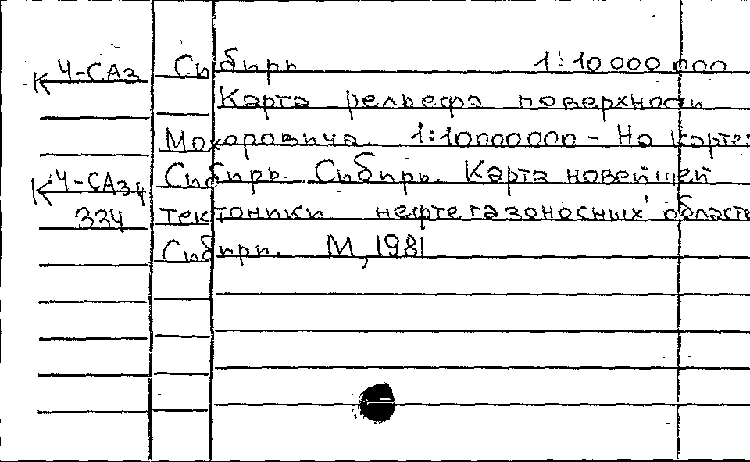 К Ч-САз Сибирь 1:10 000 000
Карта рельефа поверхности
Мохоровича. 1:10000000 - На карте:
К Ч-САз4 Сибирь. Сибирь. Карта новейшей
334 тектоники нефтегазоносных област
Сибири. М, 1981